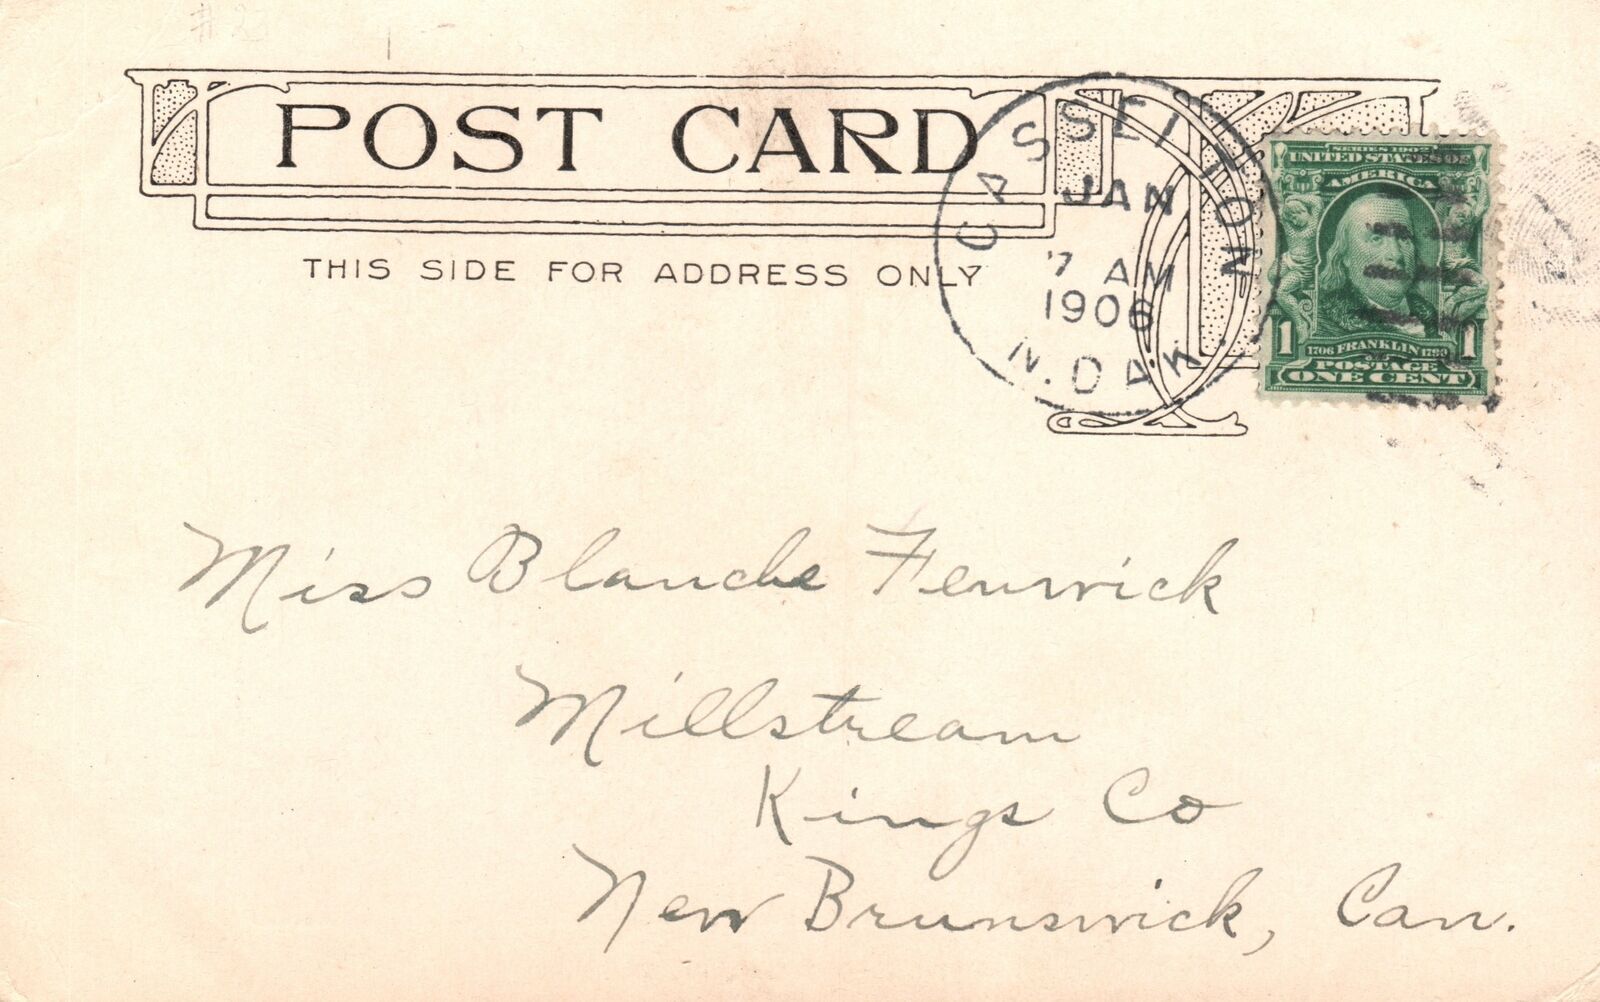 POST CARD
THIS SIDE FOR ADDRESS ONLY
CASSELTON
JAN
7 AM
1906
N. DAK.
SERIES 1902
UNITED STATES OF
AMERICA
1 1
1706 FRANKLIN 1790
POSTAGE
ONE CENT
Miss Blanche Fenwick
Millstream
Kings Co
New Brunswick, Can.